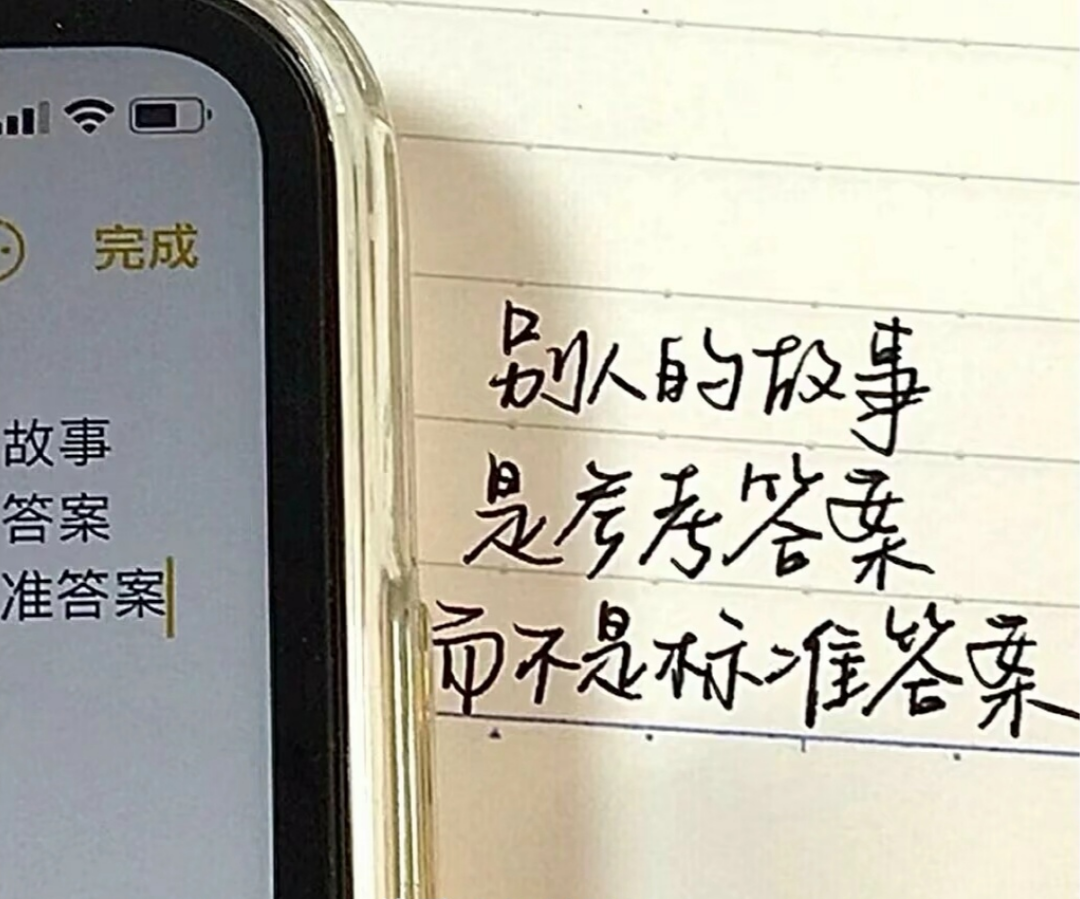 完成
故事
答案
准答案
别人的故事
是参考答案
而不是标准答案